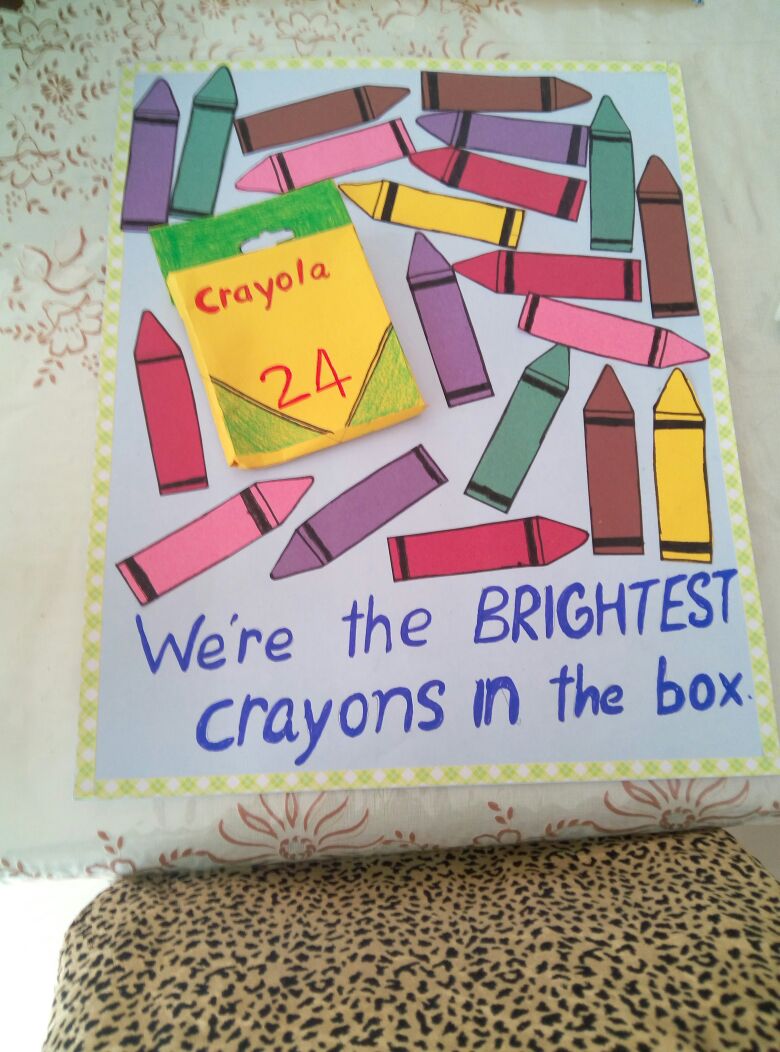 Crayola
24
We're the BRIGHTEST
crayons in the box.